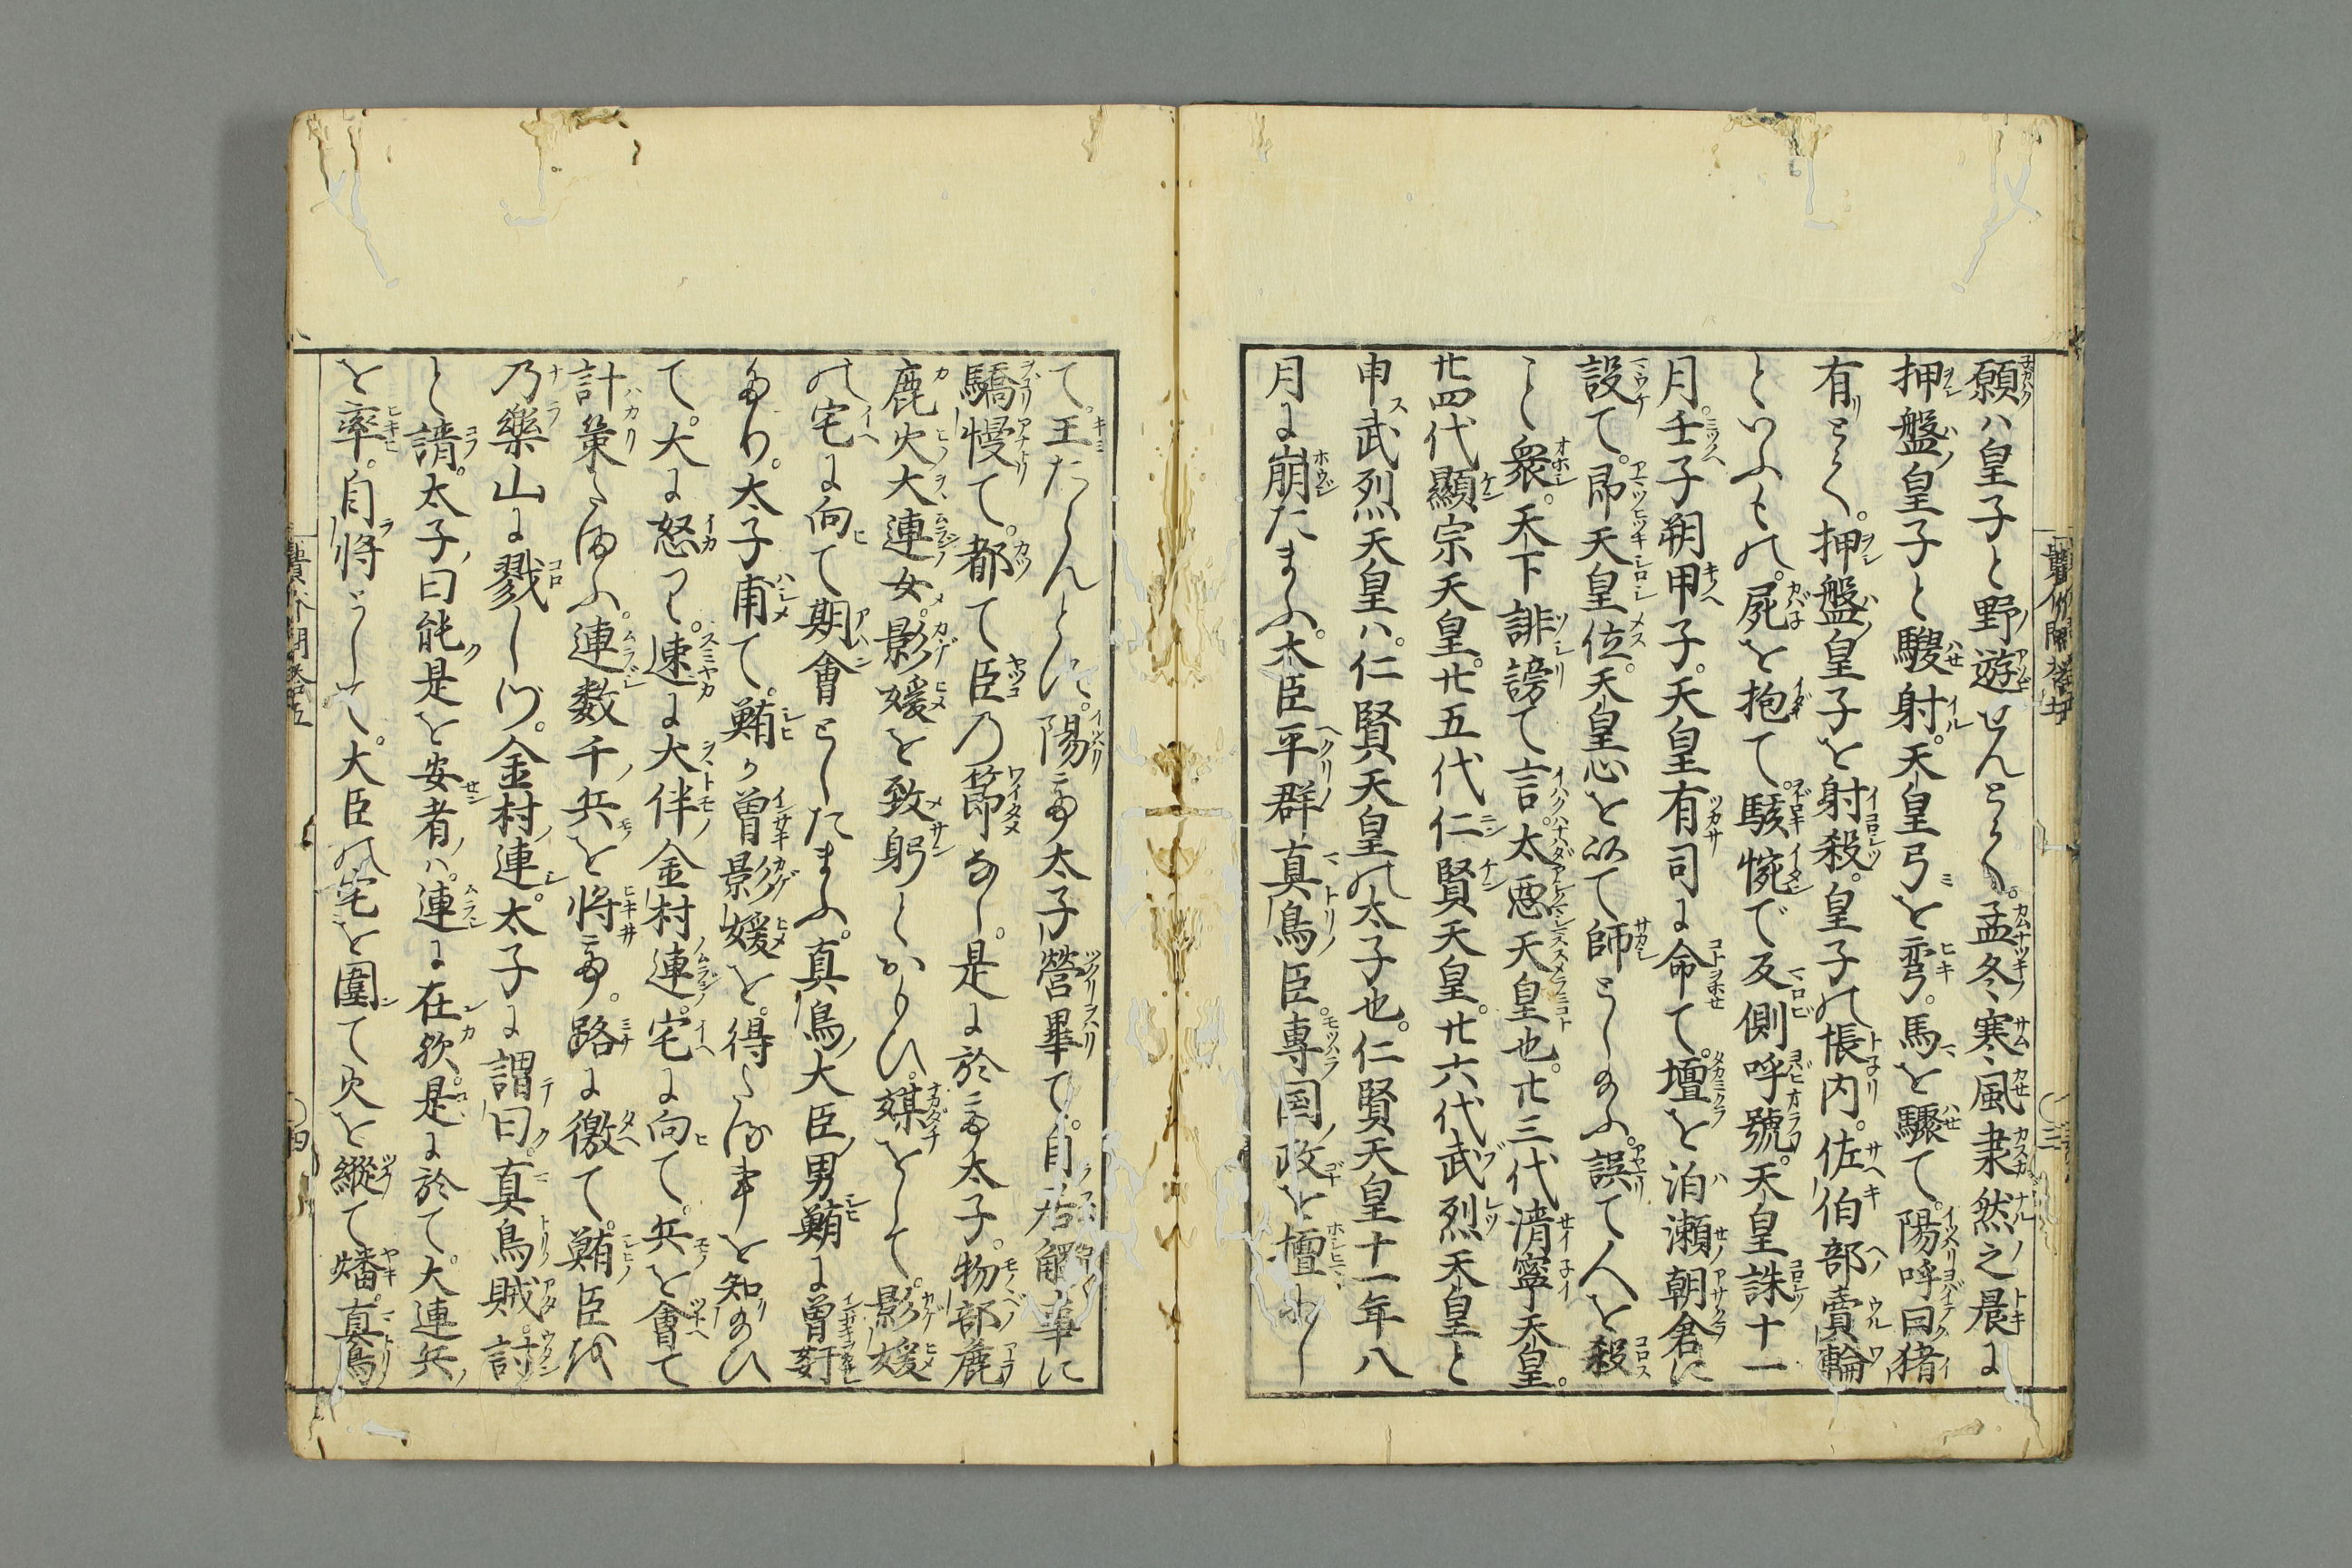 願ハ皇子と野遊せんとく。孟冬寒風肅然之晨に
押盤皇子と驟射。天皇弓を彎。馬を驟て。陽呼曰猪
有とく。押盤皇子を射殺。皇子の帳内。佐伯部賣輪
といふもの。屍を抱て。駭惋で反側呼號。天皇誅十一
月。壬子朔甲子。天皇有司に命て。壇を泊瀬朝倉に
設て。即天皇位。天皇心を以て師としのふ。誤て人を殺
こと衆。天下誹謗て言。太惡天皇也。廿三代清寧天皇。
廿四代顯宗天皇。廿五代仁賢天皇。廿六代武烈天皇と
申武烈天皇ハ。仁賢天皇の太子也。仁賢天皇十一年八
月に崩たまふ。大臣平群真鳥臣。專国政を擅にし
て。王たらんとす。陽テ太子營畢て。自居觸事に
驕慢て。都て臣乃節なし。是に於テ太子。物部麁
鹿火大連女。影媛を致躬とおもひ。媒をして。影媛
の宅に向て期會としたまふ。真鳥大臣男鮪に曽姧
あり。太子甫て。鮪か曽影媛を。得たる事を知のひ
て。大に怒つて。速に大伴金村連。宅に向て。兵を會て
計策たまふ。連数千兵を將テ。路に徼て。鮪臣を
乃樂山に戮しつ。金村連。太子に謂曰。真鳥賊。討
と請。太子曰能是を安者ハ。連に在欤。是に於て。大連兵
を率。自將として。大臣の宅を圍て火を縦て燔。真鳥